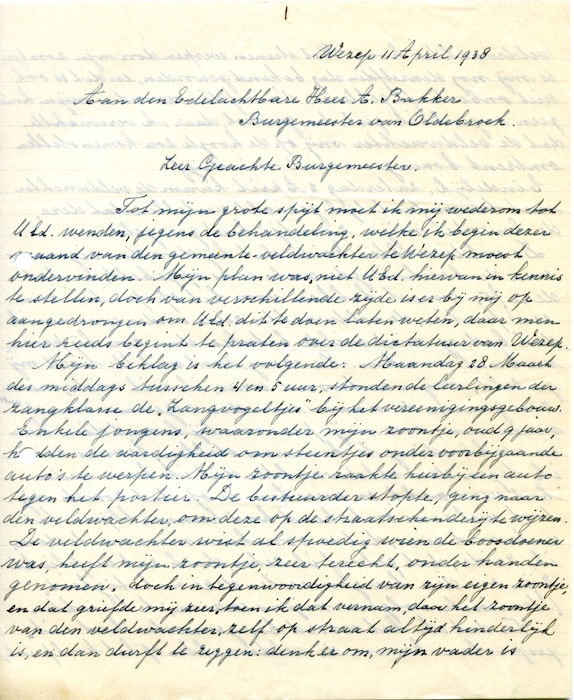 Wezep 11 April 1938
Aan den Edelachtbare Heer A. Bakker
Burgemeester van Oldebroek.
Zeer Geachte Burgemeester.
Tot mijn grote spijt moet ik mij wederom tot
U Ed. wenden, jegens de behandeling, welke ik begin dezer
maand van den gemeente-veldwachter te Wezep moest
ondervinden. Mijn plan was, niet U Ed. hiervan in kennis
te stellen, doch van verschillende zijde is er bij mij op
aangedrongen om U Ed. dit te doen laten weten, daar men
hier reeds begint te praten over de dictatuur van Wezep.
Mijn beklag is het volgende: Maandag 28 Maart
des middags tusschen 4 en 5 uur, stonden de leerlingen der
zangklasse de "Zangvogeltjes" bij het vereenigingsgebouw.
Enkele jongens, waaronder mijn zoontje, oud 9 jaar,
hadden de aardigheid om steentjes onder voorbijgaande
auto's te werpen. Mijn zoontje raakte hierbij een auto
tegen het portier. De bestuurder stopte, ging naar
den veldwachter, om deze op de straatschenderij te wijzen.
De veldwachter wist al spoedig wien de boosdoener
was, heeft mijn zoontje, zeer terecht, onder handen
genomen, doch in tegenwoordigheid van zijn eigen zoontje,
en dat griefde mij zeer, toen ik dat vernam, daar het zoontje
van den veldwachter, zelf op straat altijd hinderlijk
is, en dan durft te zeggen: denk er om, mijn vader is